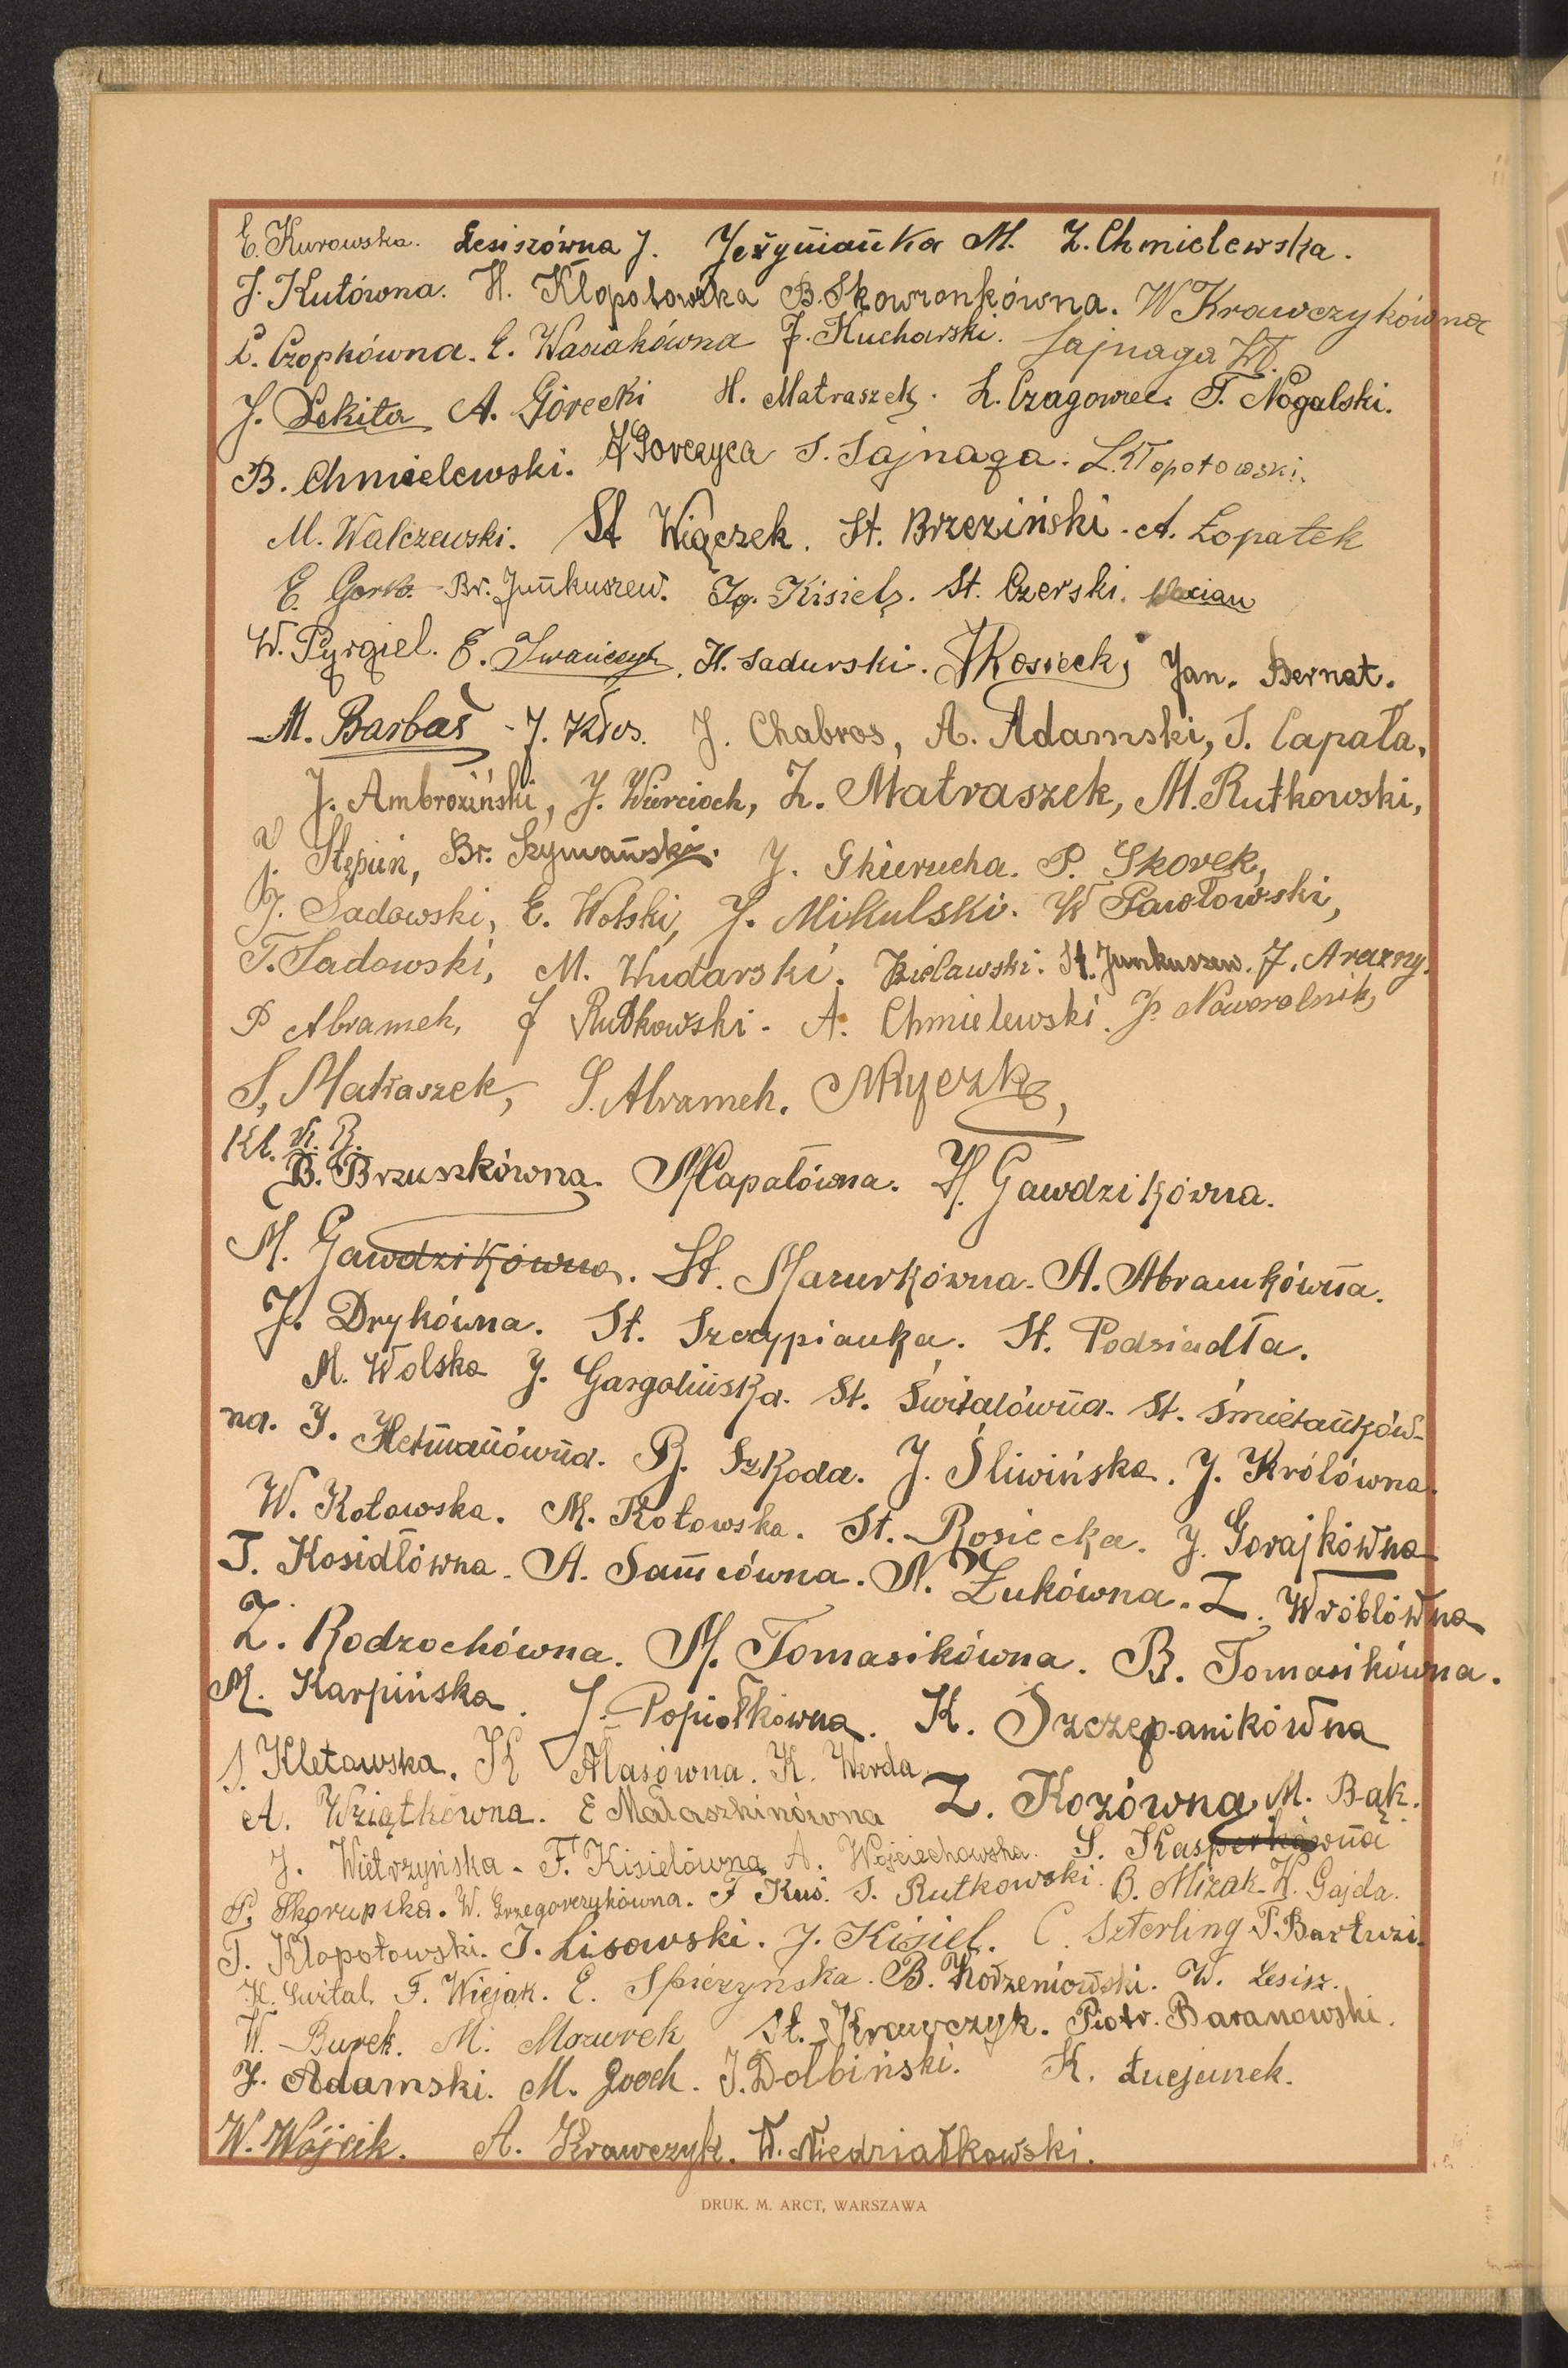 E. Kurowska. Lesiszówna J. Jeżyniańka M. Z. Chmielewska.
J. Kutówna. H. Kłopotowska B. Skowronkówna. W Krawczykówna
L. Czopkówna. E. Wasiakówna F. Kucharski. Sajnaga Wł.
J. Lekita A. Górecki H. Matraszek. L. Czagowiec. T. Nogalski.
B. Chmielewski. Gorczyca S. Sajnaga. L. Kłopotowski.
M. Walczewski. St Wiączek. St. Brzeziński. A. Łopatek
E. Gorko Br. Junkuszew. Ig. Kisiel. St. Czerski.
W. Pyrgiel. E. Iwańczyk. H. Sadurski. Kosiecki Jan. Bernat.
M. Barbaś - J. Kłos. J. Chabros, A. Adamski, J. Capała,
J. Ambroziński, J. Wiercioch, Z. Matraszek, M. Rutkowski,
J. Stępień, Br. Szymański. J. Gkierucha. P. Skorek,
J. Sadowski, E. Wolski, J. Mikulski. W Pawłowski,
T. Sadowski, M. Wudarski. Bielawski. St. Junkuszew. J. Arazny.
P Abramek, J Rutkowski. A. Chmielewski. J. Noworolnik,
S. Matraszek, S. Abramek.
Kl. VI. B.
B. Brzuszkówna. M Capałówna. H. Gawdzikówna.
M. Gawdzikówna. St. Mazurkówna. A. Abramkówna.
J. Drykówna. St. Szczypianka. St. Podsiadła.
M. Wolska J. Gargolińska. St. Świtalówna. St. Śmietanków-
na. J. Hetmanówna. B. Szkoda. J. Śliwińska. J. Królówna.
W. Kotowska. M. Kotowska. St. Rosiecka. J. Gorajkówna
J. Kosidłówna. A. Samcówna. N. Żukówna. Z. Wróblówna
Z. Rodzochówna. M. Tomasikówna. B. Tomasikówna.
M. Karpińska. J. Popiołkówna. K. Szczepanikówna
S. Kletowska. K Małasówna. K. Werda.
A. Wziątkówna. E Małaszkinówna Z. Kozówna, M. Bąk.
J. Wietrzyńska. F. Kisielówna A. Wojciechowska. S. Kasperkówna
P. Skorupska. W. Grzegorzykówna. F Kuś. S. Rutkowski. B. Mizak. K. Gajda.
T. Kłopotowski. J. Lisowski. J. Kisiel. C. Szterling P. Bartuzi.
K. Świtał. F. Wiejak. E. Spieżyńska. B. Kodzeniowski. W. Lesisz.
W. Burek. M. Mazurek St. Krawczyk. Piotr. Baranowski.
J. Adamski. M. Groch. J. Dolbiński. K. Łucjanek.
W. Wójcik. A. Krawczyk. W. Niedziałkowski.
DRUK. M. ARCT, WARSZAWA